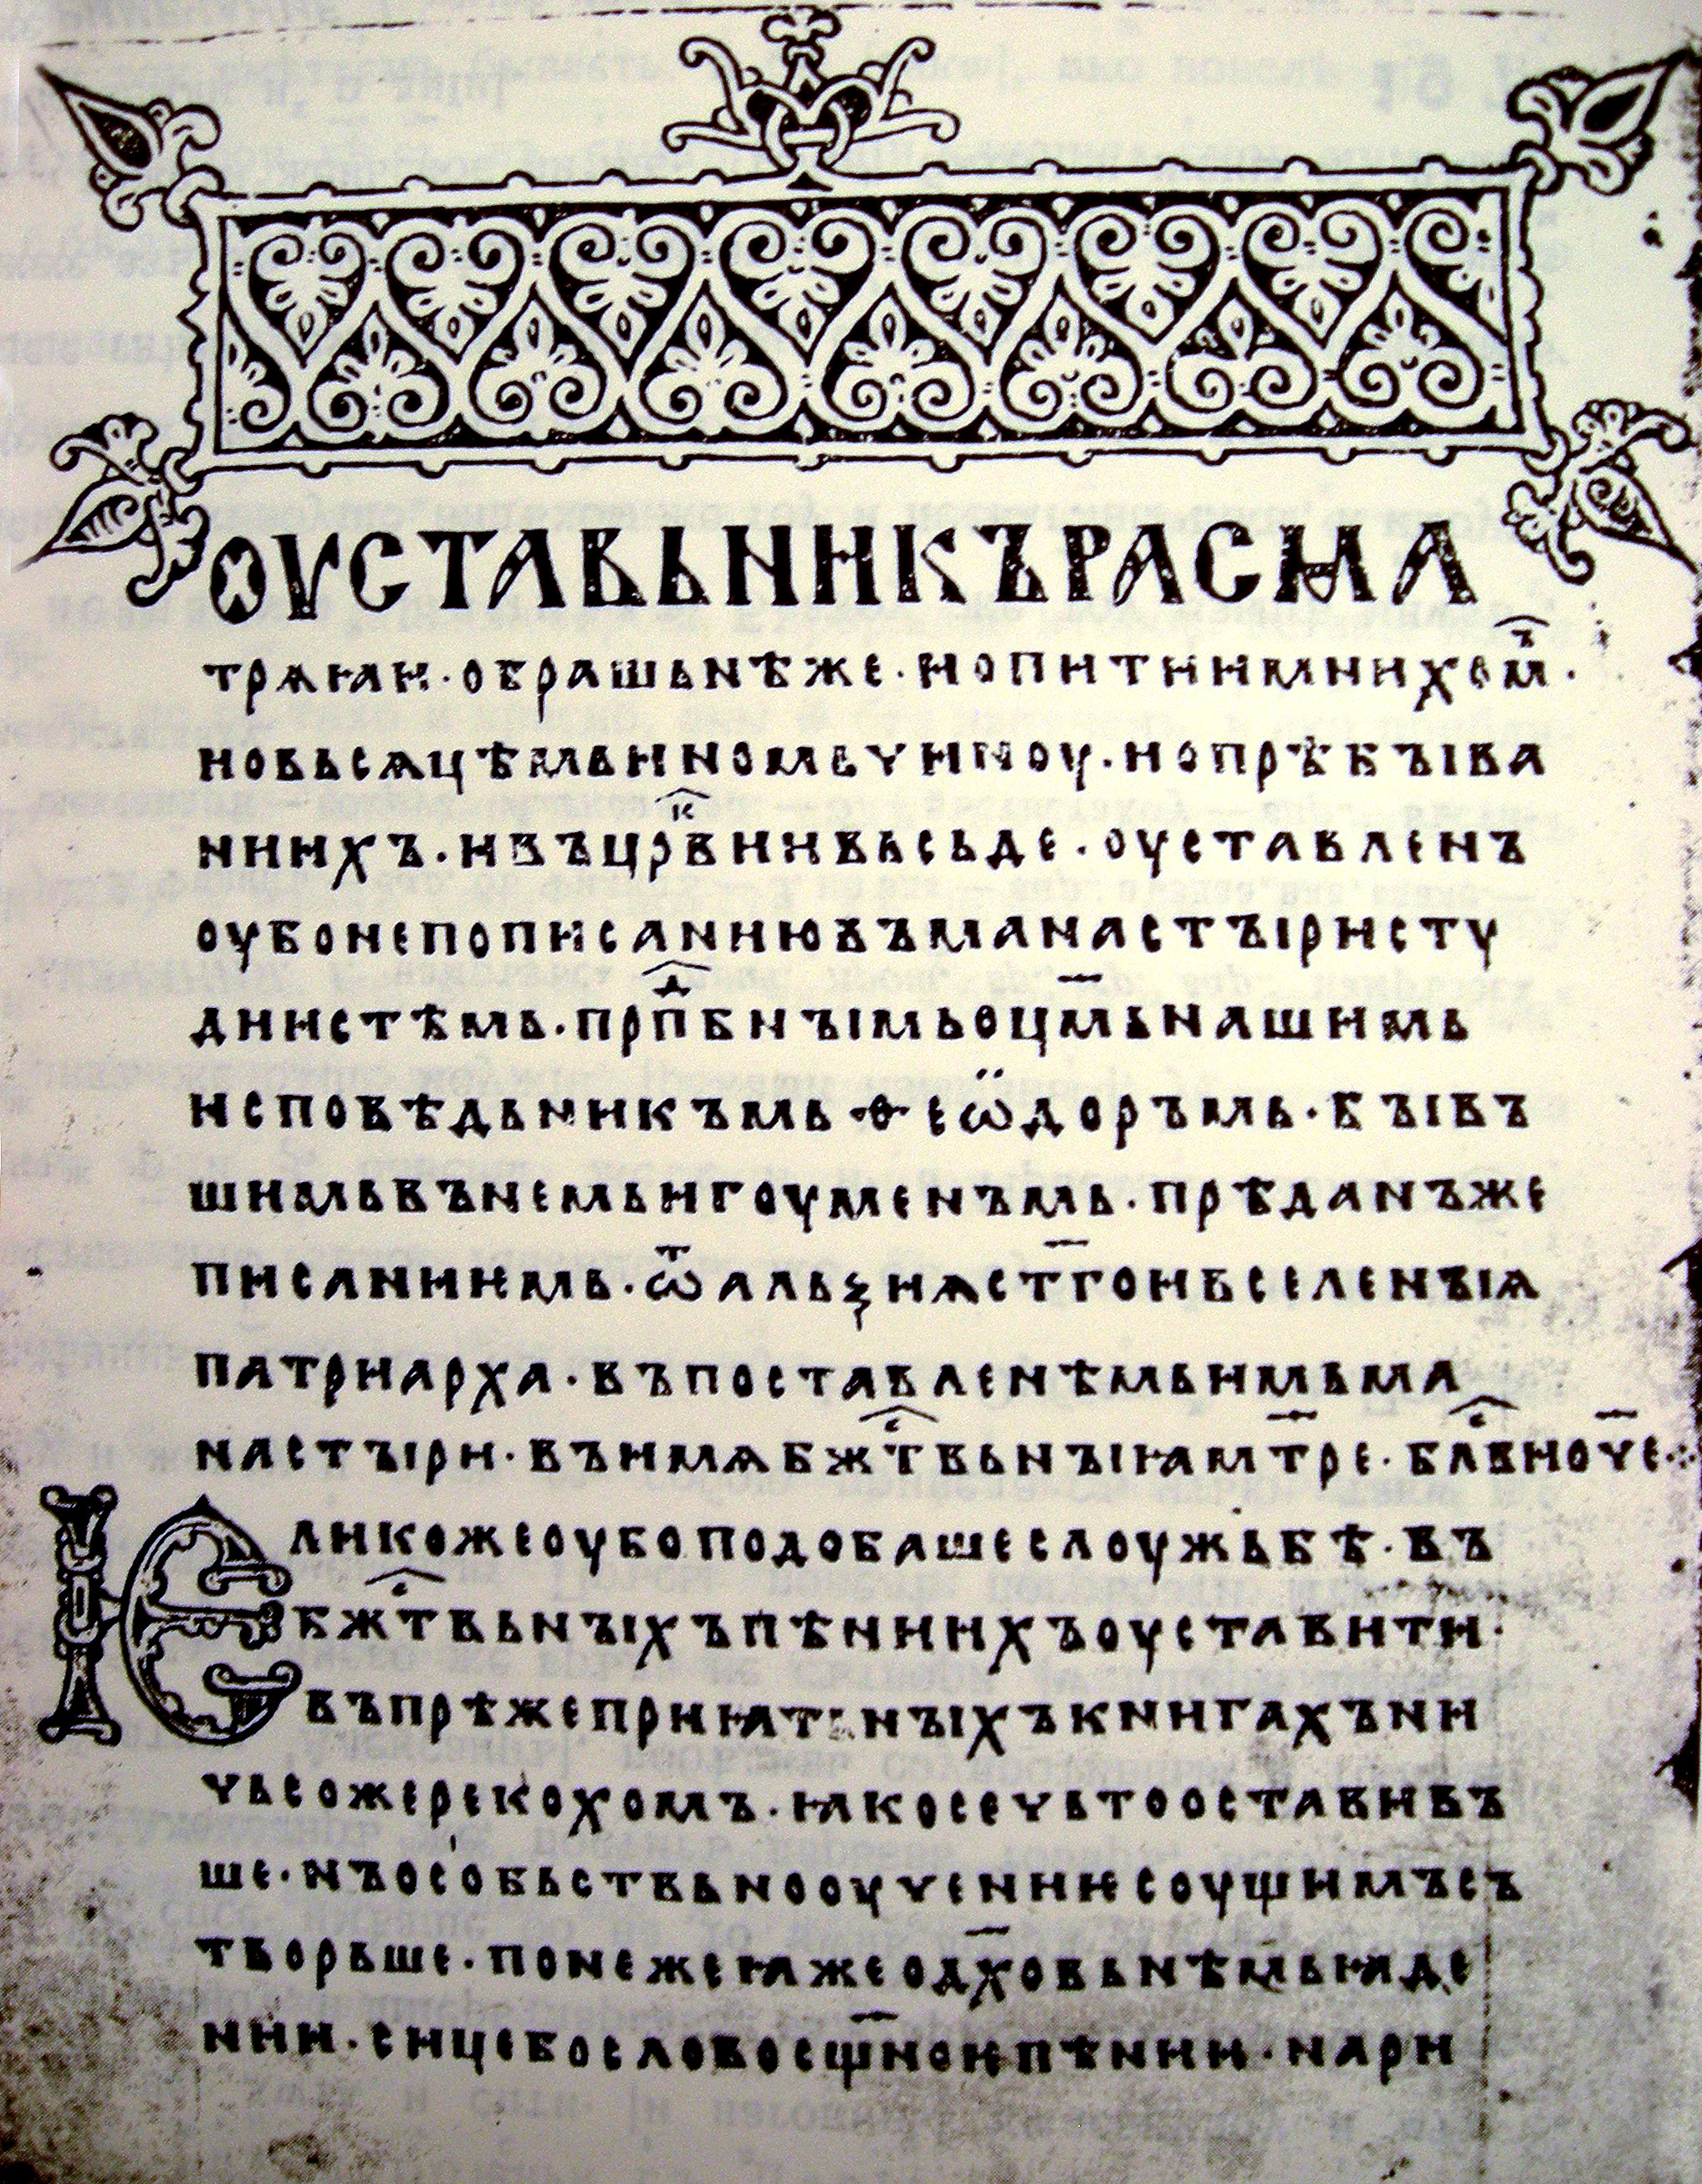 ОУСТАВЬНИКЪРАСМА
трѧꙗи·обрашьнѣже·иопитиимнихом̑ъ·
новьсѧцѣмьиномьчиноу·иопрѣбꙑва
ниихъ·ивъцр҃квииивьсьде·оуставленъ
оубонепописаниювъманастꙑристу
диистѣмь·прп̑дбнꙑмьоцм҃ьнашимь
исповѣдьникъмьѳеѡ̈доръмь·бꙑвъ
шимьвънемьигоуменъмь·прѣданъже
писаниѥмь·ѿальѯиѧст҃гоивселенꙑѧ
патриарха·въпоставленѣмьимьма
настꙑри·въимѧбжⷭ҇твьнꙑꙗмт҃ре·блⷭ҇вноч҃е·:·
Ѥликожеоубоподобашеслоужьбѣ·въ
бжⷭ҇твьнꙑхъпѣниихъоуставити·
въпрѣжеприꙗтьнꙑхъкнигахъни
чьсожерекохомъ·ꙗкосечьтооставивъ
ше·нъособьствьнооучениѥсоущимъсъ
творьше·понежеꙗжеодх҃овьнѣмьꙗде
нии·сицебословосщ҃ноѥпѣнии·нари